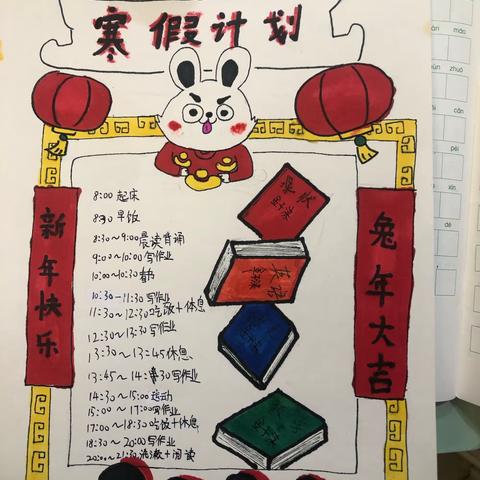 寒假计划
新年快乐
兔年大吉
8:00 起床
8:30 早饭
8:30~9:00晨读背诵
9:00~10:00写作业
10:00~10:30
10:30-11:30写作业
11:30~12:30吃饭+休息
12:30~13:30写作业
13:30~13:45休息
13:45~14:30写作业
14:30~15:00运动
15:00~17:00写作业
17:00~18:30吃饭+休息
18:30~20:00写作业
20:00~21:30洗漱+阅读
英语